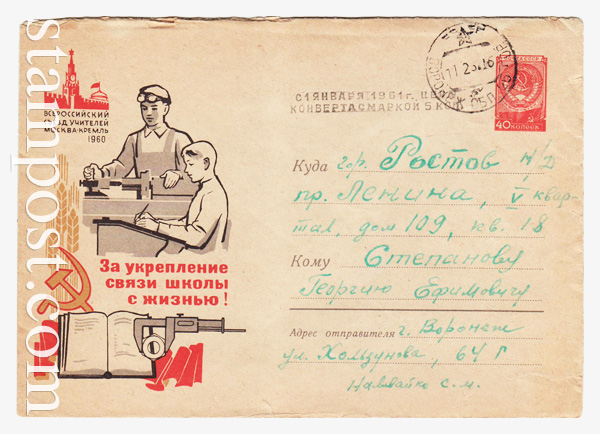 ВСЕРОССИЙСКИЙ
СЪЕЗД УЧИТЕЛЕЙ
МОСКВА-КРЕМЛЬ
1960
С 1 ЯНВАРЯ 1961 г. ЦЕНА
КОНВЕРТА С МАРКОЙ 5 КОП.
40 КОПЕЕК
Куда гор. Ростов н/Д
пр. Ленина, V квар-
тал, дом 109, кв. 18
Кому Степанову
Георгию Ефимовичу
За укрепление
связи школы
с жизнью!
Адрес отправителя г. Воронеж
ул. Хользунова, 64 г
Наливайко С. М.
stampost.com
stampost.com